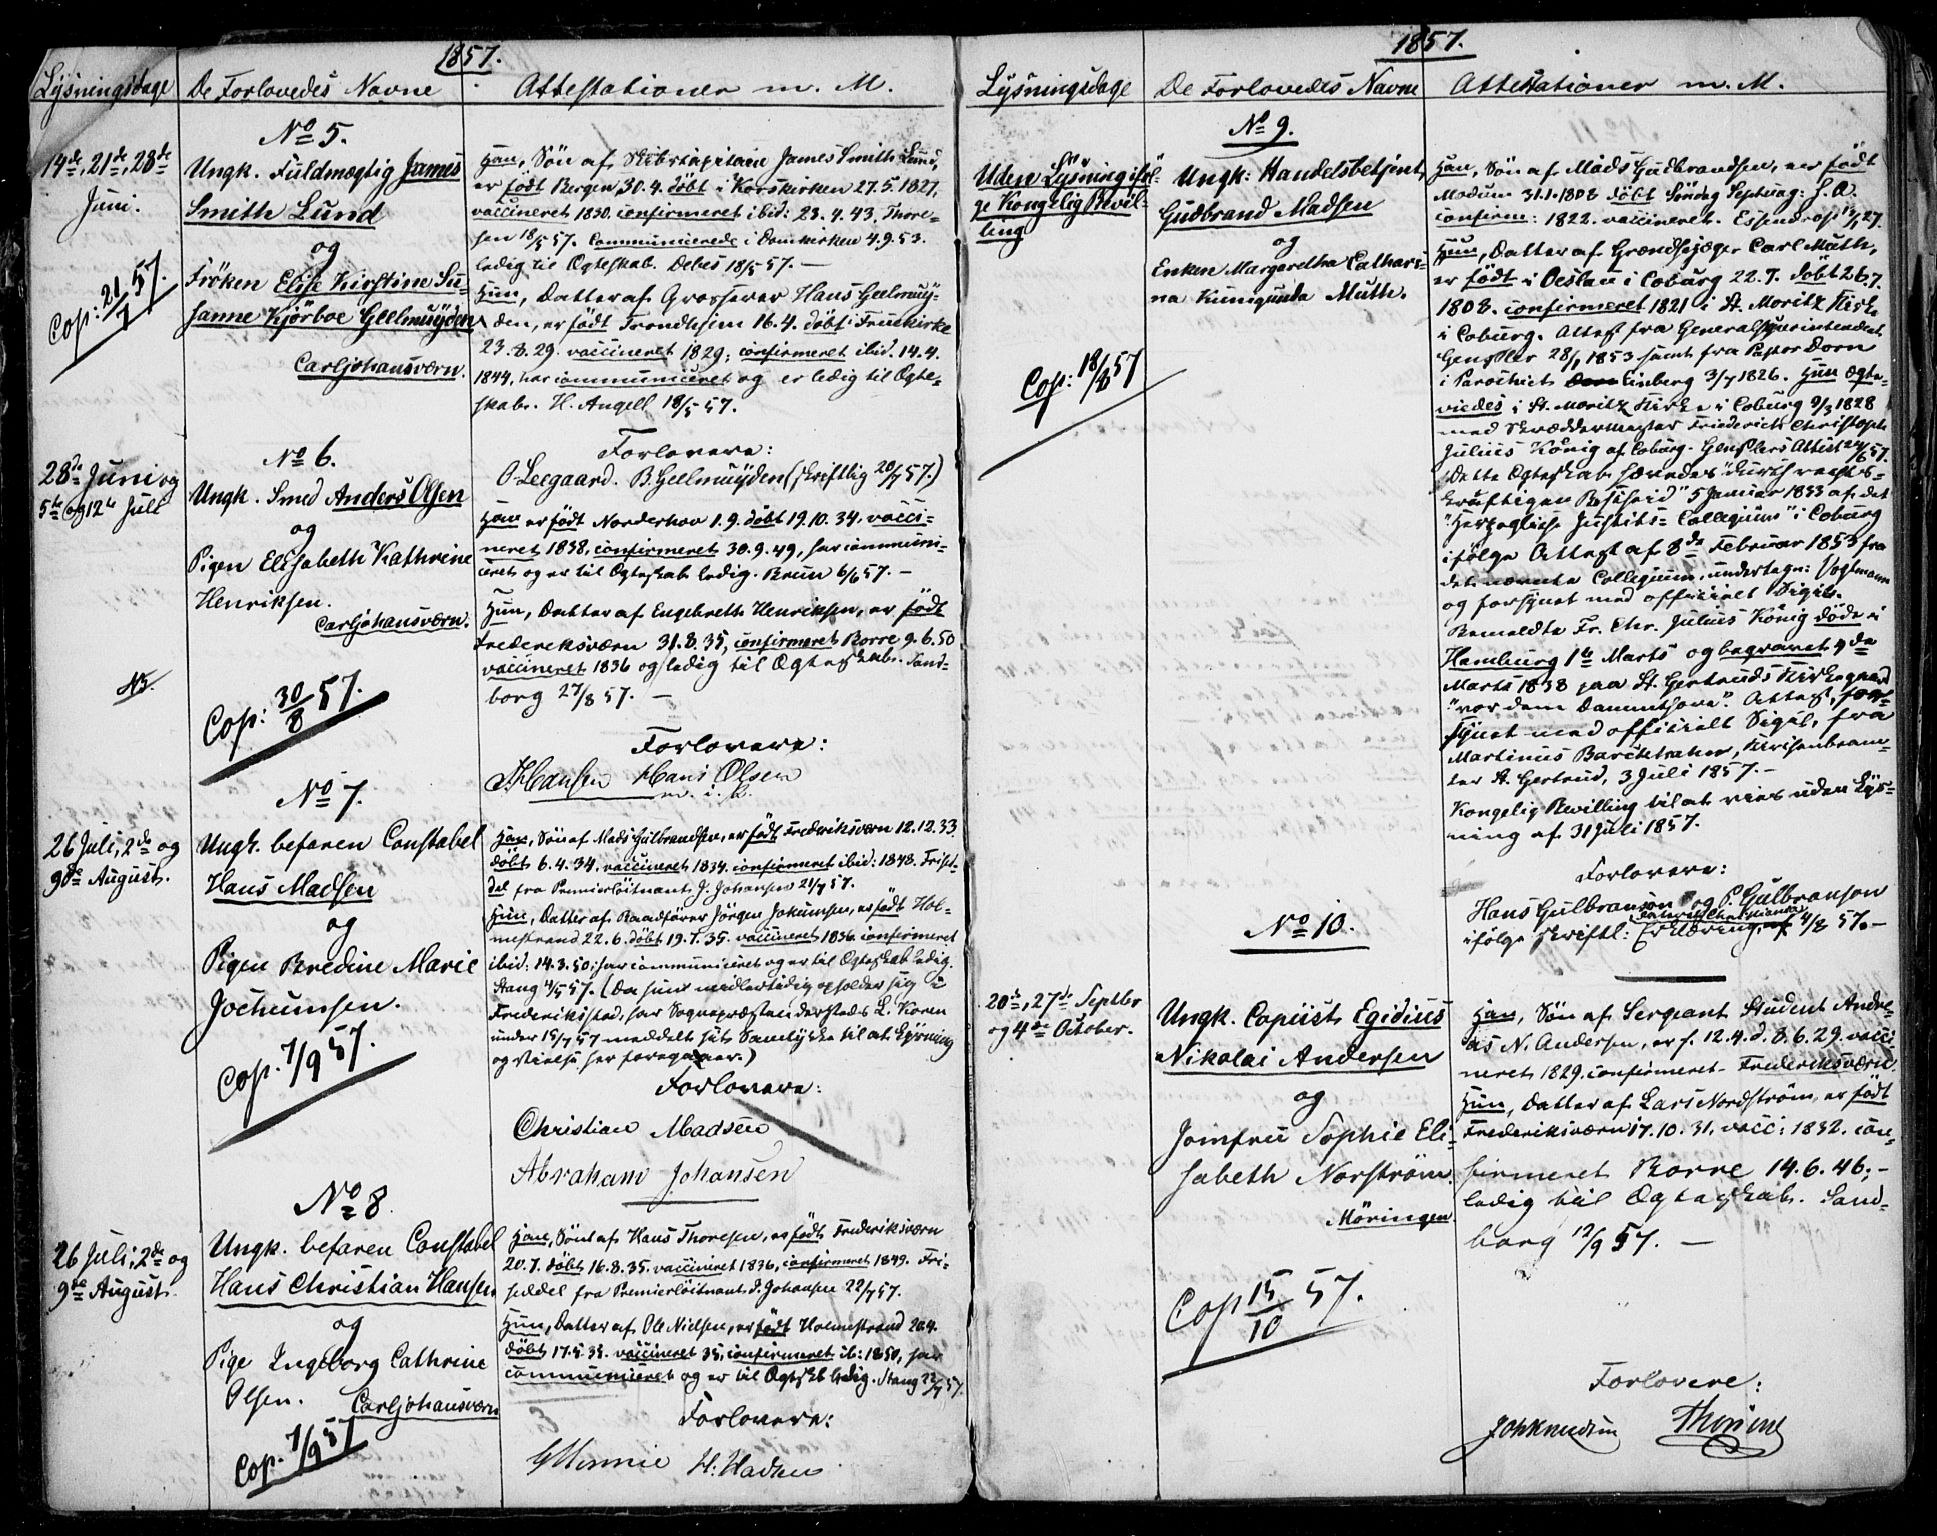 1857.
Lysningsdage De Forlovedes Navne Attestationer m. M.
No 5.
14de, 21de, 28de
Juni.
Ungk. Fuldmægtig James
Smith Lund
og
Frøken Elise Kirstine Su-
sanne Kjørboe Geelmuÿden
Carljohansværn.
Cop: 21/7 57.
Han, Søn af Skibscapitain James Smith Lund,
er født Bergen 30.4. døbt i Korskirken 27.5.1827,
vaccineret 1830. confirmeret ibid: 23.4.43. Thore-
sen 18/5 57. Communicerede i Domkirken 4.9.53.
ledig til Ægteskab. Debes 18/5 57. —
Hun, Datter af Grosserer Hans Geelmuÿ-
den, er født Trondhjem 16.4. døbt Fruekirke
23.8.29. vaccineret 1829; confirmeret ibid. 14.4.
1844, har communiceret og er ledig til Ægte-
skab. H. Angell 18/5 57.
Forlovere:
O Leegaard. B. Geelmuÿden (skriftlig 20/7 57.)
No 6.
28de Juni og
5te og 12te Juli
Ungk. Smed Anders Olsen
og
Pigen Elisabeth Kathrine
Henriksen.
Carljohansværn.
Cop: 30/8 57.
Han er født Norderhov 1.9. døbt 19.10.34. vacci-
neret 1838, confirmeret 30.9.49, har communi-
ceret og er til Ægteskab ledig. Bruun 6/6 57. —
Hun, Datter af Engebreth Henriksen, er født
Frederiksværn 31.8.35, confirmeret Borre 9.6.50
vaccineret 1836 og ledig til Ægteskab. Sand-
borg 27/8 57. —
Forlovere:
Hansen Hans Olsen
m. i. P.
No 7.
26 Juli, 2de og
9de August.
Ungk. befaren Constabel
Hans Madsen
og
Pigen Bredine Marie
Jochumsen.
Cop. 7/9 57.
Han, Søn af Mads Gulbrandsen, er født Frederiksværn 12.12.33.
døbt 6.4.34. vaccineret 1834. confirmeret ibid: 1848. Frised-
del fra Premierløitnant J. Johansen 21/7 57.
Hun, Datter af Baadfører Jørgen Jokumsen, er født Hol-
mestrand 22.6. døbt 19.7.35. vaccineret 1836. confirmeret
ibid: 14.3.50; har communiceret og er til Ægteskab ledig.
Stang 4/5 57. (Da hun midlertidig opholder sig i
Frederiksstad, har Sognepræsten dersteds L. Koren
under 15/7 57 meddelt sit Samtykke til at Lysning
og Vielse her foregaaer.)
Forlovere:
Christian Madsen
Abraham Johansen
No 8.
26 Juli, 2de og
9de August.
Ungk. befaren Constabel
Hans Christian Hansen
og
Pige Ingeborg Cathrine
Olsen. Carljohansværn
Cop. 7/9 57
Han, Søn af Hans Thoresen, er født Frederiksværn
20.7. døbt 16.8.35. vaccineret 1836, confirmeret 1849. Fri-
seddel fra Premierløitnant J. Johansen 22/7 57.
Hun, Datter af Ole Nielsen, er født Holmestrand 20.4.
døbt 17.5.35. vaccineret 35, confirmeret ib: 1850, har
communiceret og er til Ægtesk. ledig. Stang 22/7 57.
Forlovere:
H. Hadsen
1857.
Lysningsdage De Forlovedes Navne Attestationer m. M.
No 9.
Uden Lysning iføl-
ge Kongelig Bevil-
ling
Ungk: Handelsbetjent
Gudbrand Madsen
og
Enken Margaretha Cathari-
na Kunigunda Muth.
Cop: 18/8 57
Han, Søn af Mads Gudbrandsen, er født
Modum 31.1.1808 døbt Søndag Septuag: s. A.
confirm: 1822. vaccineret. Essendrop 17/7 27.
Hun, Datter af Grændsejæger Carl Muth,
er født i Oeslau i Coburg 22.7. døbt 26.7.
1808. confirmeret 1821 i St. Moritz Kirke
i Coburg. Attest fra Generalsuperintendent
Genssler 28/1 1853 samt fra Pastor Dorn
i Parochiet Einberg 3/7 1826. Hun ægte-
viedes i St. Moritz Kirke i Coburg 9/3 1828
med Skræddermester Friederich Christoph
Julius König af Coburg. Gensslers Attest 24/6 57.
Dette Ægteskab hævedes "durch rechts-
kräftigen Bescheid" 5 Januar 1833 af det
"Herzogliche Justits-Collegium" i Coburg
ifølge Attest af 8de Februar 1853 fra
det nævnte Collegium, undertegn: Vogtmann
og forsynet med officielt Sigil.
Bemeldte Fr. Chr. Julius König døde i
Hamburg 1te Marts og begravet 4de
Marts 1838 paa St. Gertruds Kirkegaard
"vor dem Dammthore". Attest, for-
synet med officielt Sigil, fra
Martinus
ter St. Gertrud, 3 Juli 1857. —
Kongelig Bevilling til at vies uden Lys-
ning af 31 Juli 1857.
Forlovere:
Hans Gulbranson og P. Gulbranson
ifølge skriftl: Erklæring, 4/8 57. —
No 10.
20de, 27de Septbr
og 4de October.
Ungk. Copiist Egidius
Nikolai Andersen
og
Jomfru Sophie Eli-
sabeth Norstrøm.
Møringen.
Cop 15/10 57.
Han, Søn af Sergeant Student Andre-
as N. Andersen, er f. 12.4. d. 8.6.29. vacci-
neret 1829. confirmeret Frederiksværn.
Hun, Datter af Lars Nordstrøm, er født
Frederiksværn 17.10.31, vacc: 1832. con-
firmeret Borre 14.6.46; —
ledig til Ægteskab. Sand-
borg 12/9 57. —
Forlovere: